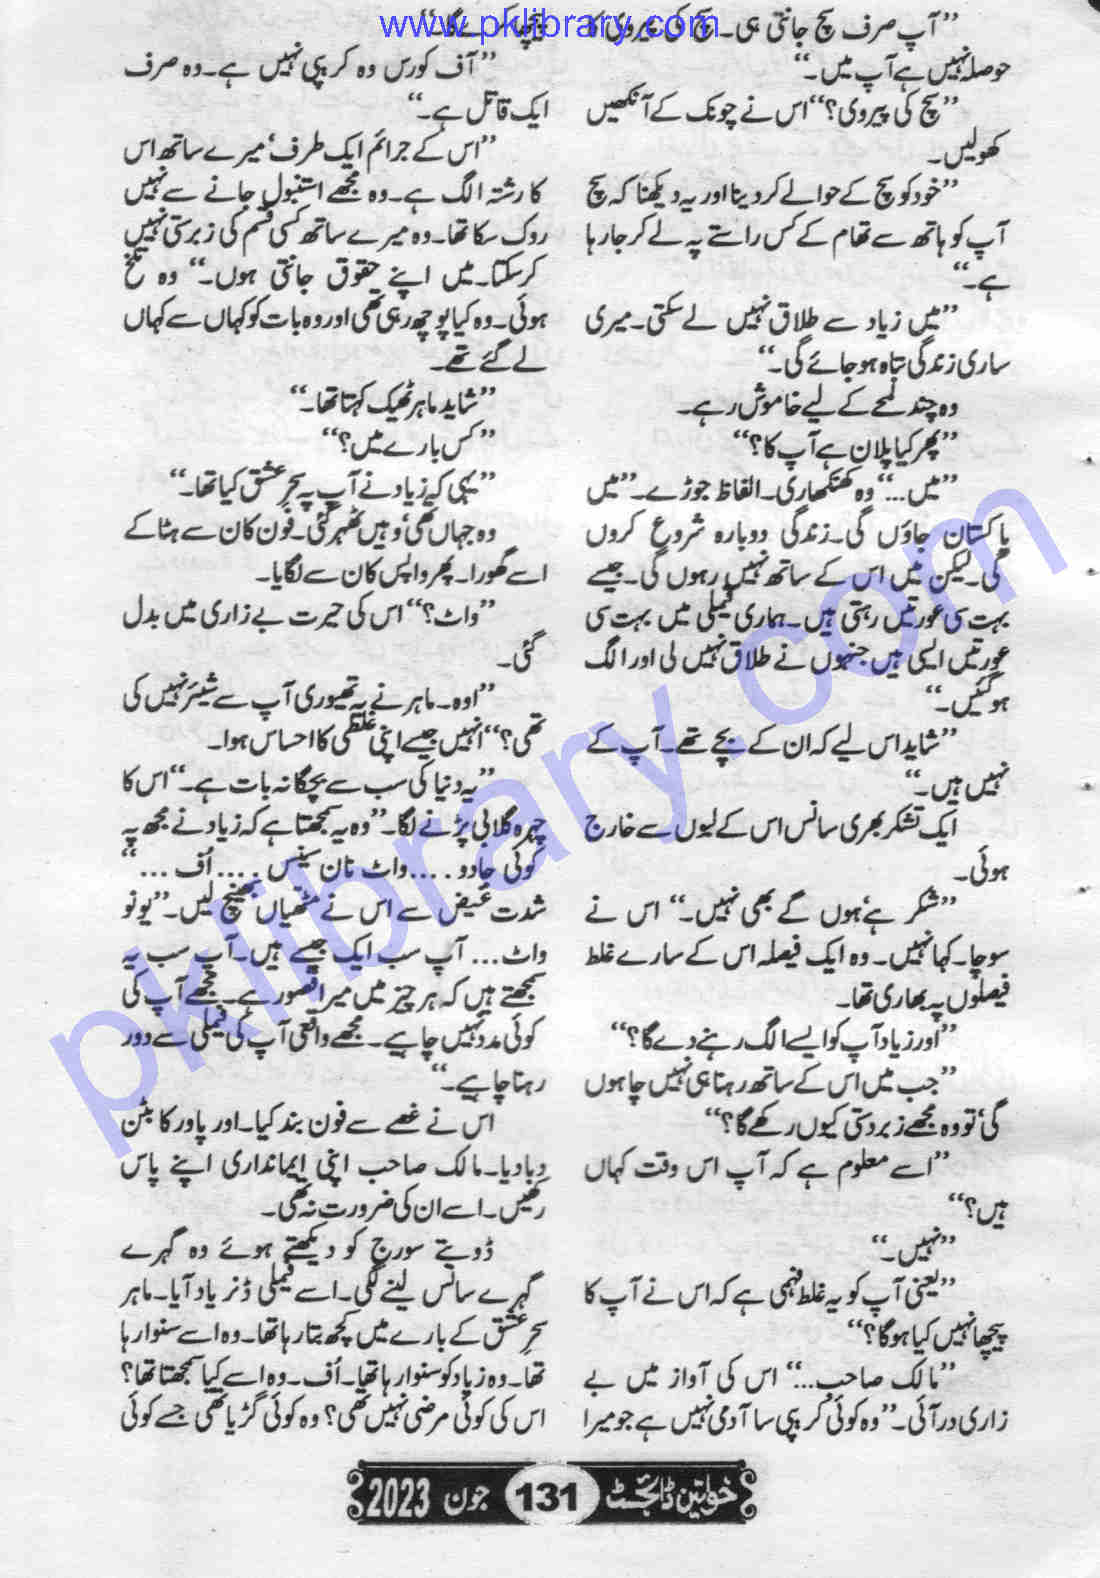 www.pklibrary.com
”آپ صرف سچ جانتی ہی۔ سچ کی پیروی کا
حوصلہ نہیں ہے آپ میں۔“
”سچ کی پیروی؟“ اس نے چونک کے آنکھیں
کھولیں۔
”خود کو سچ کے حوالے کر دینا اور یہ دیکھنا کہ سچ
آپ کو ہاتھ سے تھام کے کس راستے پہ لے کر جا رہا
ہے۔“
”میں زیاد سے طلاق نہیں لے سکتی۔ میری
ساری زندگی تباہ ہو جائے گی۔“
وہ چند لمحے کے لیے خاموش رہے۔
”پھر کیا پلان ہے آپ کا؟“
”میں...“ وہ کھنکھاری۔ الفاظ جوڑے۔ ”میں
پاکستان جاؤں گی۔ زندگی دوبارہ شروع کروں
گی۔ لیکن میں اس کے ساتھ نہیں رہوں گی۔ جیسے
بہت سی عورتیں رہتی ہیں۔ ہماری فیملی میں بہت سی
عورتیں ایسی ہیں جنہوں نے طلاق نہیں لی اور الگ
ہو گئیں۔“
”شاید اس لیے کہ ان کے بچے تھے۔ آپ کے
نہیں ہیں۔“
ایک تشکر بھری سانس اس کے لبوں سے خارج
ہوئی۔
”شکر ہے‘ ہوں گے بھی نہیں۔“ اس نے
سوچا۔ کہا نہیں۔ وہ ایک فیصلہ اس کے سارے غلط
فیصلوں پہ بھاری تھا۔
”اور زیاد آپ کو ایسے الگ رہنے دے گا؟“
”جب میں اس کے ساتھ رہنا ہی نہیں چاہوں
گی‘ تو وہ مجھے زبردستی کیوں رکھے گا؟“
”اسے معلوم ہے کہ آپ اس وقت کہاں
ہیں؟“
”نہیں۔“
”یعنی آپ کو یہ غلط فہمی ہے کہ اس نے آپ کا
پیچھا نہیں کیا ہوگا؟“
”مالک صاحب...“ اس کی آواز میں بے
زاری در آئی۔ ”وہ کوئی کریپی سا آدمی نہیں ہے جو میرا
پیچھا کرے گا۔“
”آف کورس وہ کریپی نہیں ہے۔ وہ صرف
ایک قاتل ہے۔“
”اس کے جرائم ایک طرف‘ میرے ساتھ اس
کا رشتہ الگ ہے۔ وہ مجھے استنبول جانے سے نہیں
روک سکا تھا۔ وہ میرے ساتھ کسی قسم کی زبرستی نہیں
کر سکتا۔ میں اپنے حقوق جانتی ہوں۔“ وہ تلخ
ہوئی۔ وہ کیا پوچھ رہی تھی اور وہ بات کو کہاں سے کہاں
لے گئے تھے۔
”شاید ماہر ٹھیک کہتا تھا۔“
”کس بارے میں؟“
”یہی کہ زیاد نے آپ پہ سحرِ عشق کیا تھا۔“
وہ جہاں تھی‘ وہیں ٹھہر گئی۔ فون کان سے ہٹا کے
اسے گھورا۔ پھر واپس کان سے لگایا۔
”واٹ؟“ اس کی حیرت بے زاری میں بدل
گئی۔
”اوہ۔ ماہر نے یہ تھیوری آپ سے شیئر نہیں کی
تھی؟“ انہیں جیسے اپنی غلطی کا احساس ہوا۔
”یہ دنیا کی سب سے بچگانہ بات ہے۔“ اس کا
چہرہ گلابی پڑنے لگا۔ ”وہ یہ سمجھتا ہے کہ زیاد نے مجھ پہ
کوئی جادو.... واٹ نان سینس.... اُف...“
شدت غیض سے اس نے مٹھیاں بھینچ لیں۔ ”یو نو
واٹ... آپ سب ایک جیسے ہیں۔ آپ سب یہ
سمجھتے ہیں کہ ہر چیز میں میرا قصور ہے۔ مجھے آپ کی
کوئی مدد نہیں چاہیے۔ مجھے واقعی آپ کی فیملی سے دور
رہنا چاہیے۔“
اس نے غصے سے فون بند کیا۔ اور پاور کا بٹن
دبا دیا۔ مالک صاحب اپنی ایمانداری اپنے پاس
رکھیں۔ اسے ان کی ضرورت نہ تھی۔
ڈوبتے سورج کو دیکھتے ہوئے وہ گہرے
گہرے سانس لینے لگی۔ اسے فیملی ڈنر یاد آیا۔ ماہر
سحرِ عشق کے بارے میں کچھ بتا رہا تھا۔ وہ اسے سنوا رہا
تھا۔ وہ زیاد کو سنوا رہا تھا۔ اُف۔ وہ اسے کیا سمجھتا تھا؟
اس کی کوئی مرضی نہیں تھی؟ وہ کوئی گڑیا تھی جسے کوئی
خواتین ڈائجسٹ 131 جون 2023
pklibrary.com